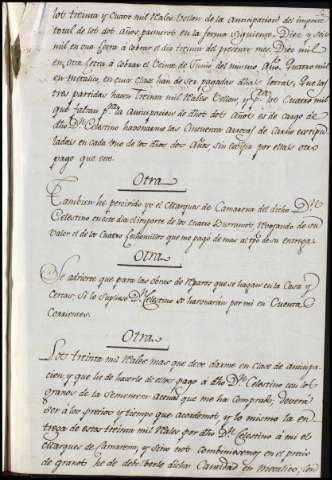 los treinta y Cuatro mil Reales Vellon de la anticipacion del importe
total de los dos años primeros en la forma siguiente. Diez y seis
mil en una Letra á cobrar el dia treinta del presente mes. Diez mil
en otra Letra á cobrar el Veinte de Junio del mismo año. Quatro mil
en metalico, en cuia clase han de ser pagadas dichas Letras. Que las
tres partidas hacen treinta mil Reales Vellon, y los Cuatro mil
que faltan la anticipacion de dhos dos Años es de cargo de
dho Dn Celestino haverme las Cinquenta Carros de Carbon
en cada uno de los dos Años sin que por ellas otro
pago que ese.
Otra
Tambien he percivido yo el Marques de Camarena del dicho Dn
Celestino en este dia el importe de los cuatro rebajando de su
valor el de los Cuatro que me pagó de mas al tpo de su entrega.
Otra
Se advierte que para las obras de reparos que se hagan en la Casa y
Cercas, si lo suplere Dn Celestino se havonarán por mi en Cuenta
Corriente.
Otra
Los treinta mil Reales mas que deve darme en clase de anticipa-
cion, y que he de hacerle de ellos pago á dho Dn Celestino con los
granos de la sementera actual que me ha comprado, deverá
ser á los precios y tiempo que acordemos, y lo mismo la en-
trega de estos treinta mil Reales por dho Dn Celestino á mi el
Marques de Camarena, y sino nos combinieremos en el precio
de granos he de debolverle dicha Cantidad en metalico, con